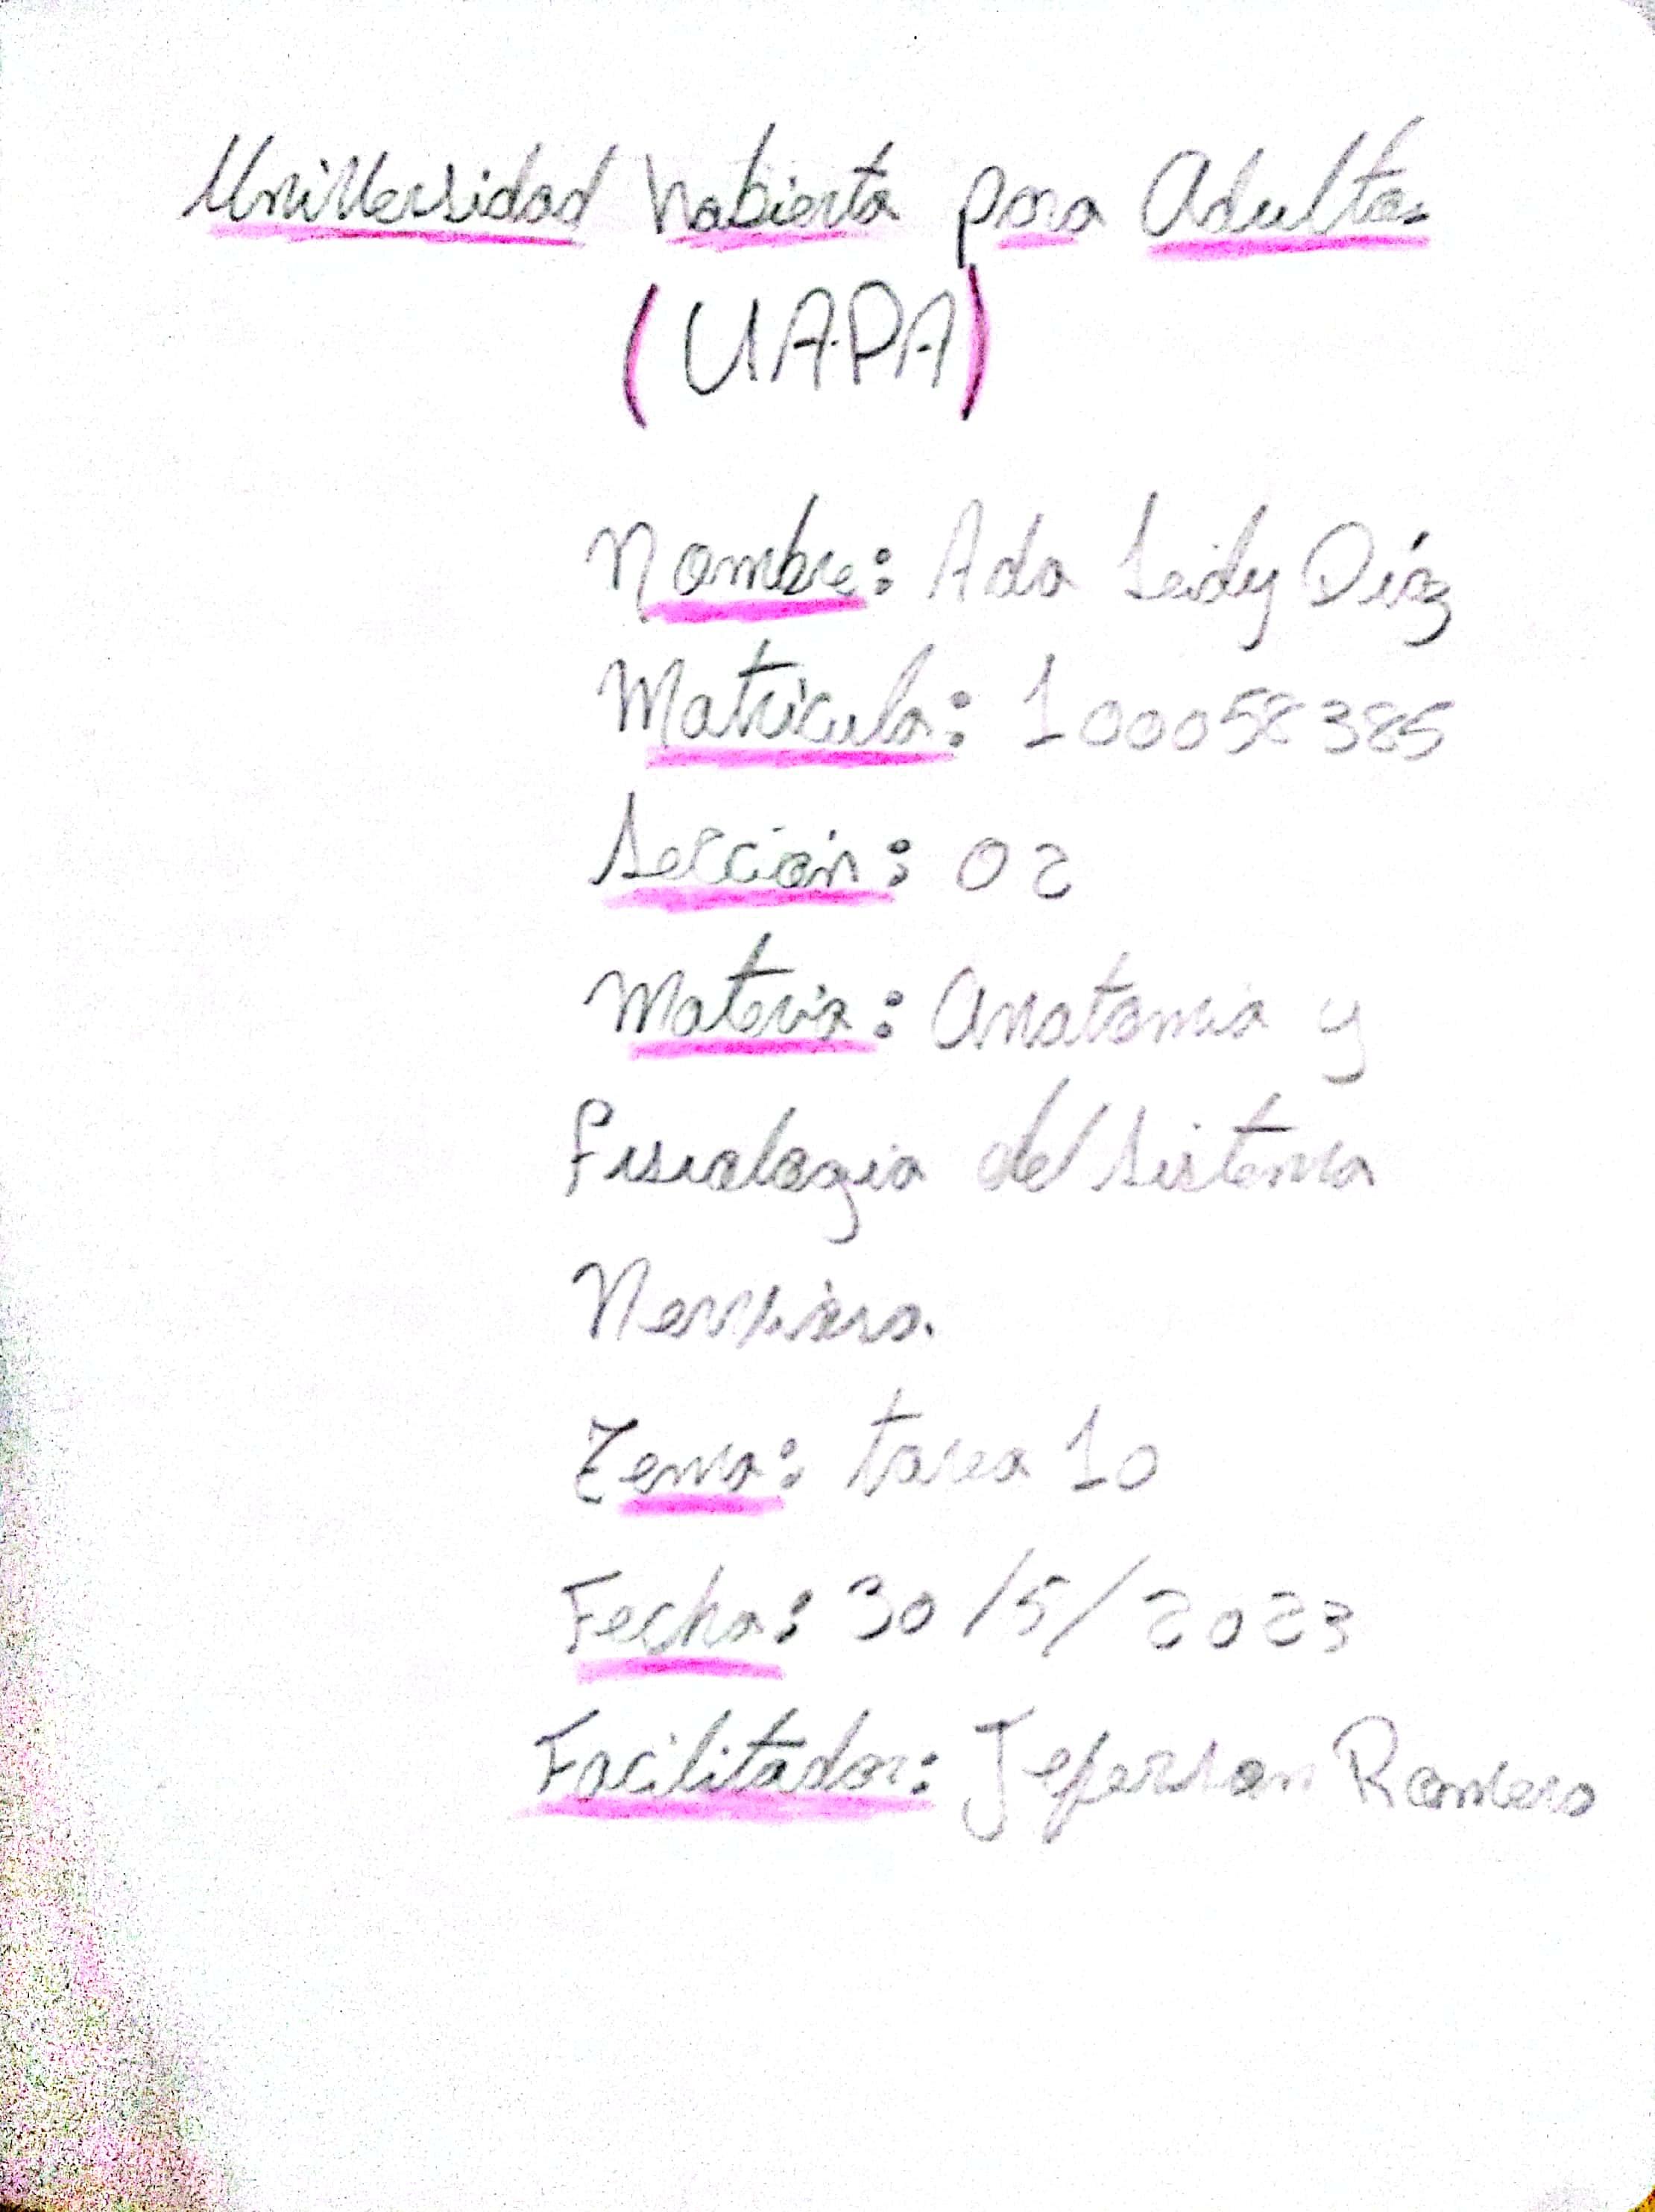 Universidad habierta para Adultos
(UAPA)
Nombre: Ada Leidy Díaz
Matricula: 100058385
Sección: 02
Materia: Anatomia y
fisiologia del sistema
Nervioso.
Tema: tarea 10
Fecha: 30/5/2023
Facilitador: Jeferson Romero